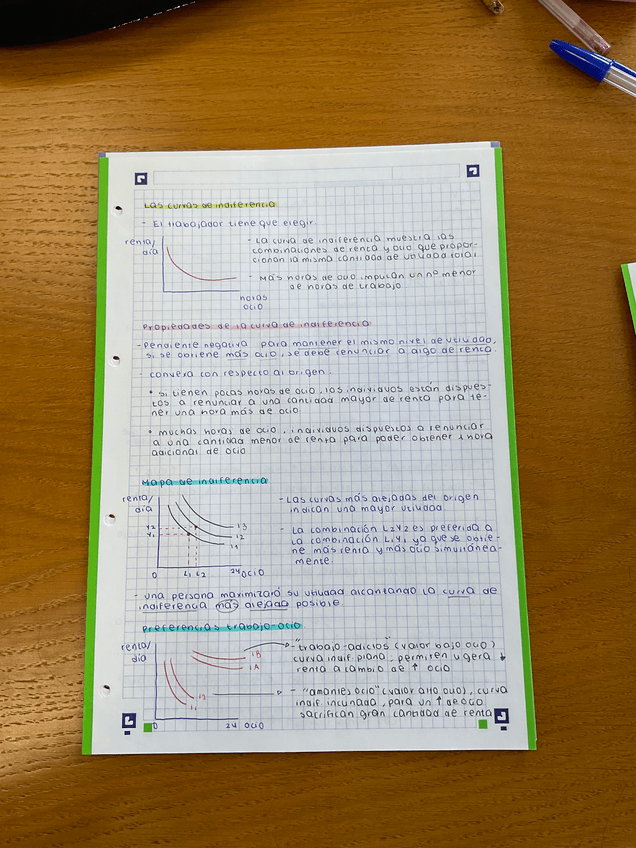 Las curvas de indiferencia
- El trabajador tiene que elegir.
renta/
día
horas
ocio
- La curva de indiferencia muestra las
combinaciones de renta y ocio que propor-
cionan la misma cantidad de utilidad total.
- Más horas de ocio implican un nº menor
de horas de trabajo.
Propiedades de la curva de indiferencia:
- Pendiente negativa para mantener el mismo nivel de utilidad,
si se obtiene más ocio, se debe renunciar a algo de renta.
- convexa con respecto al origen.
• si tienen pocas horas de ocio, los individuos están dispues-
tos a renunciar a una cantidad mayor de renta para te-
ner una hora más de ocio
• muchas horas de ocio, individuos dispuestos a renunciar
a una cantidad menor de renta para poder obtener 1 hora
adicional de ocio
Mapa de indiferencia
renta/
día
Y2
Y1
I3
I2
I1
0
L1 L2
24 OCIO
- Las curvas más alejadas del origen
indican una mayor utilidad.
- La combinación L2Y2 es preferida a
la combinación L1Y1 ya que se obtie-
ne más renta y más ocio simultánea-
mente.
- una persona maximizará su utilidad alcanzando la curva de
indiferencia más alejada posible.
Preferencias trabajo-ocio
renta/
día
IB
IA
I2
I1
0
24 OCIO
- "trabajo-adictos" (valor bajo ocio)
curva indif. plana, permiten ligera ↓
renta a cambio de ↑ ocio
- "amantes ocio" (valor alto ocio), curva
indif. inclinada, para un ↑ de ocio
sacrifican gran cantidad de renta